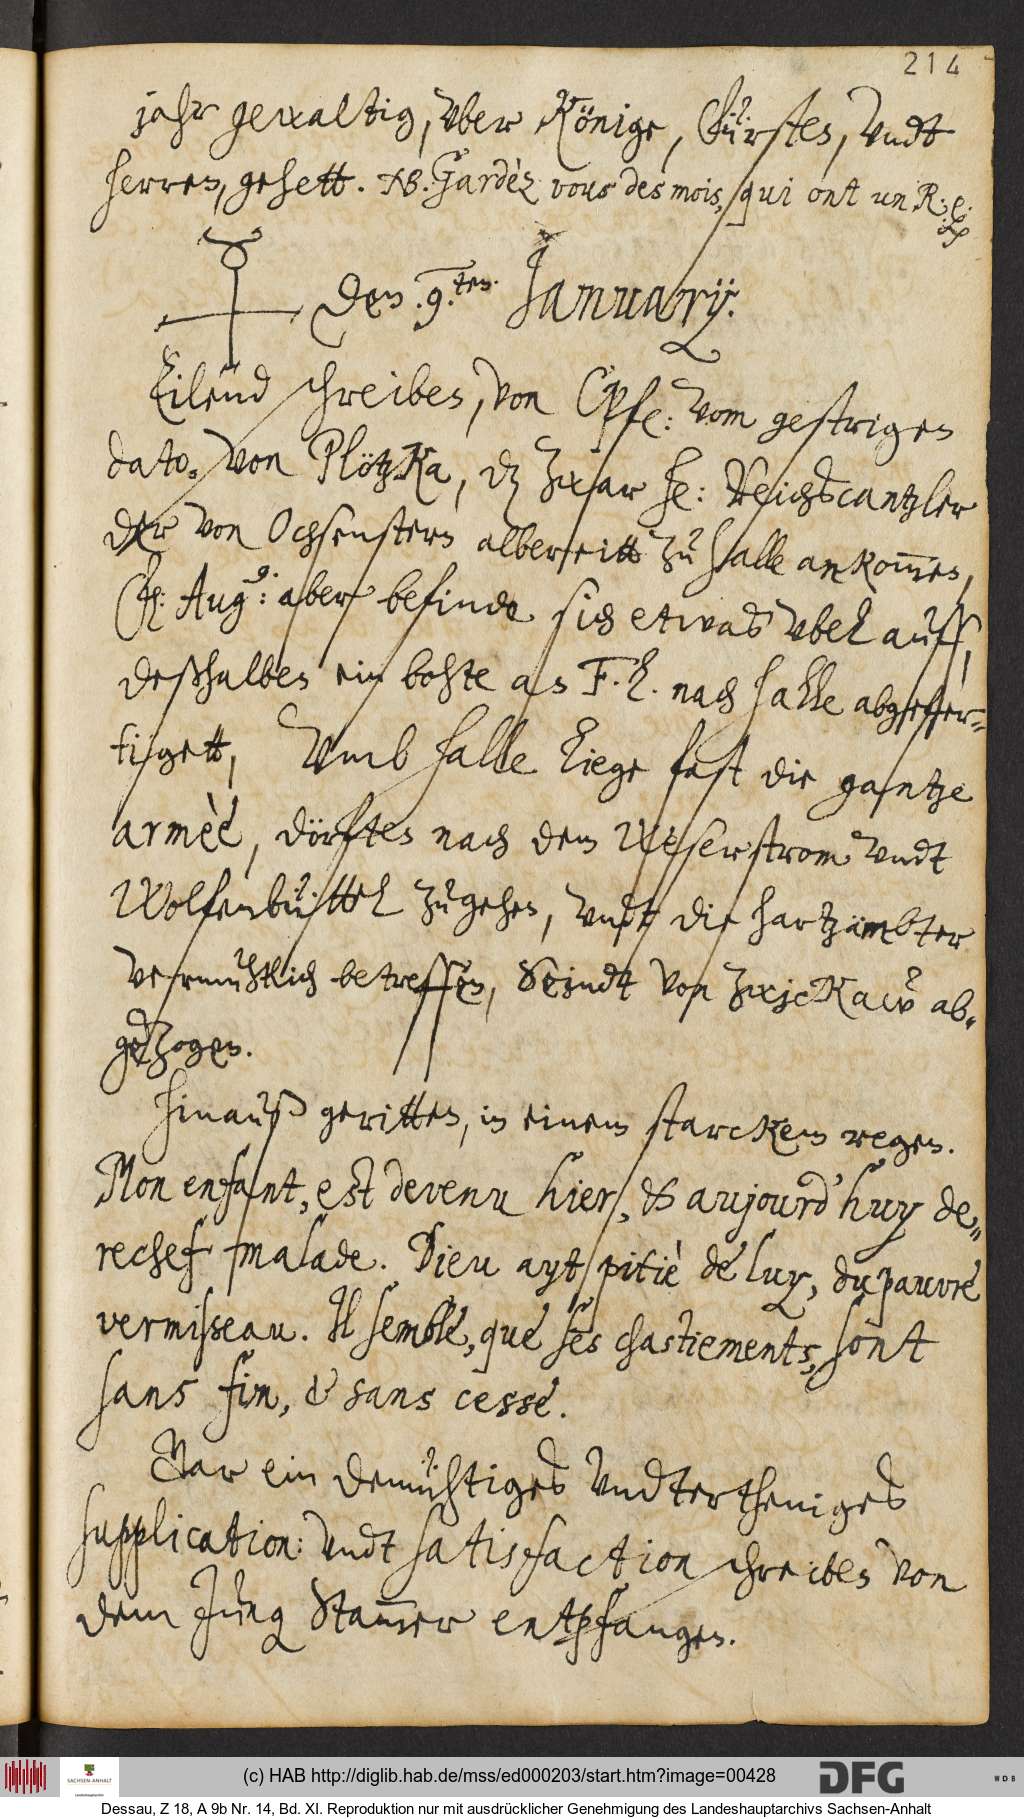 214
jahr gewaltig, vber Könige, Fürsten, vndt
herren, gesett. NB. Gardèz vous des mois, qui ont un R. e.
☿ Den .9.ten. January.
Eilend schreiben, von Cpfe: vom gestrigen
dato. von Plötzka, dz zwar he: Reichscantzler
der von Ochsenstern albereitt zu halle ankom̅en,
F. Aug: aber befinde sich etwas vbel auff,
deßhalben ein bohte an F. L. nach halle abgefer-
tigett, Vmb halle liege fast die gantze
armèé, dörften nach dem Weserstrom vndt
Wolfenbüttel zu gehen, vndt die hartzämbter
vermuhtlich betreffen, Seindt von Zwickaw ab-
gezogen.
Hinauß geritten, in einem starcken regen.
Mon enfant, est devenu hier, & aujourd'huy de-
rechef malade. Dieu ayt pitiè de luy, du pauvre
vermisseau. Il semble, que ses chastiements, sont
sans fin, & sans cesse.
Gar ein demühtiges vndtertheniges
supplication: vndt satisfaction schreiben von
dem Jung Stam̅er entpfangen.
(c) HAB http://diglib.hab.de/mss/ed000203/start.htm?image=00428
SACHSEN-ANHALT
DFG
WDB
Dessau, Z 18, A 9b Nr. 14, Bd. XI. Reproduktion nur mit ausdrücklicher Genehmigung des Landeshauptarchivs Sachsen-Anhalt